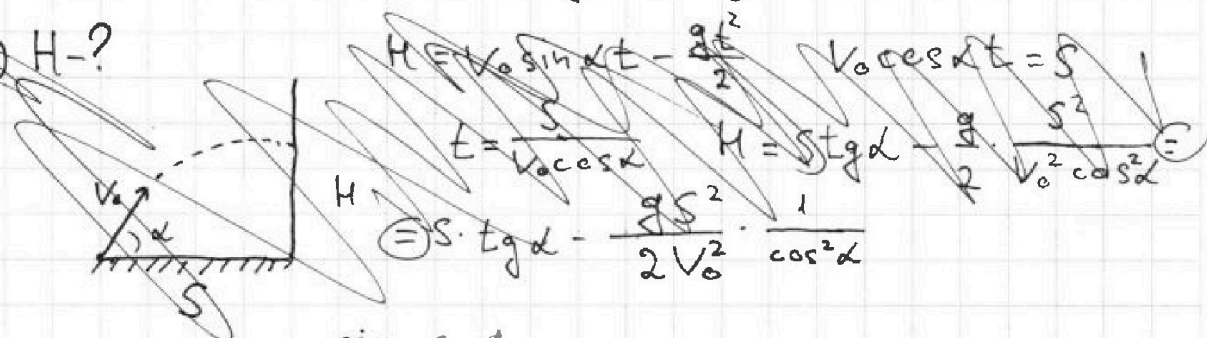 ) H-?
H = V₀ sin α t - gt²/2   V₀ cos α t = S
t = S/(V₀ cos α)   H = S tg α - g/2 · S²/(V₀² cos² α) =
= S · tg α - gS²/(2V₀²) · 1/cos² α
V₀ α H
S